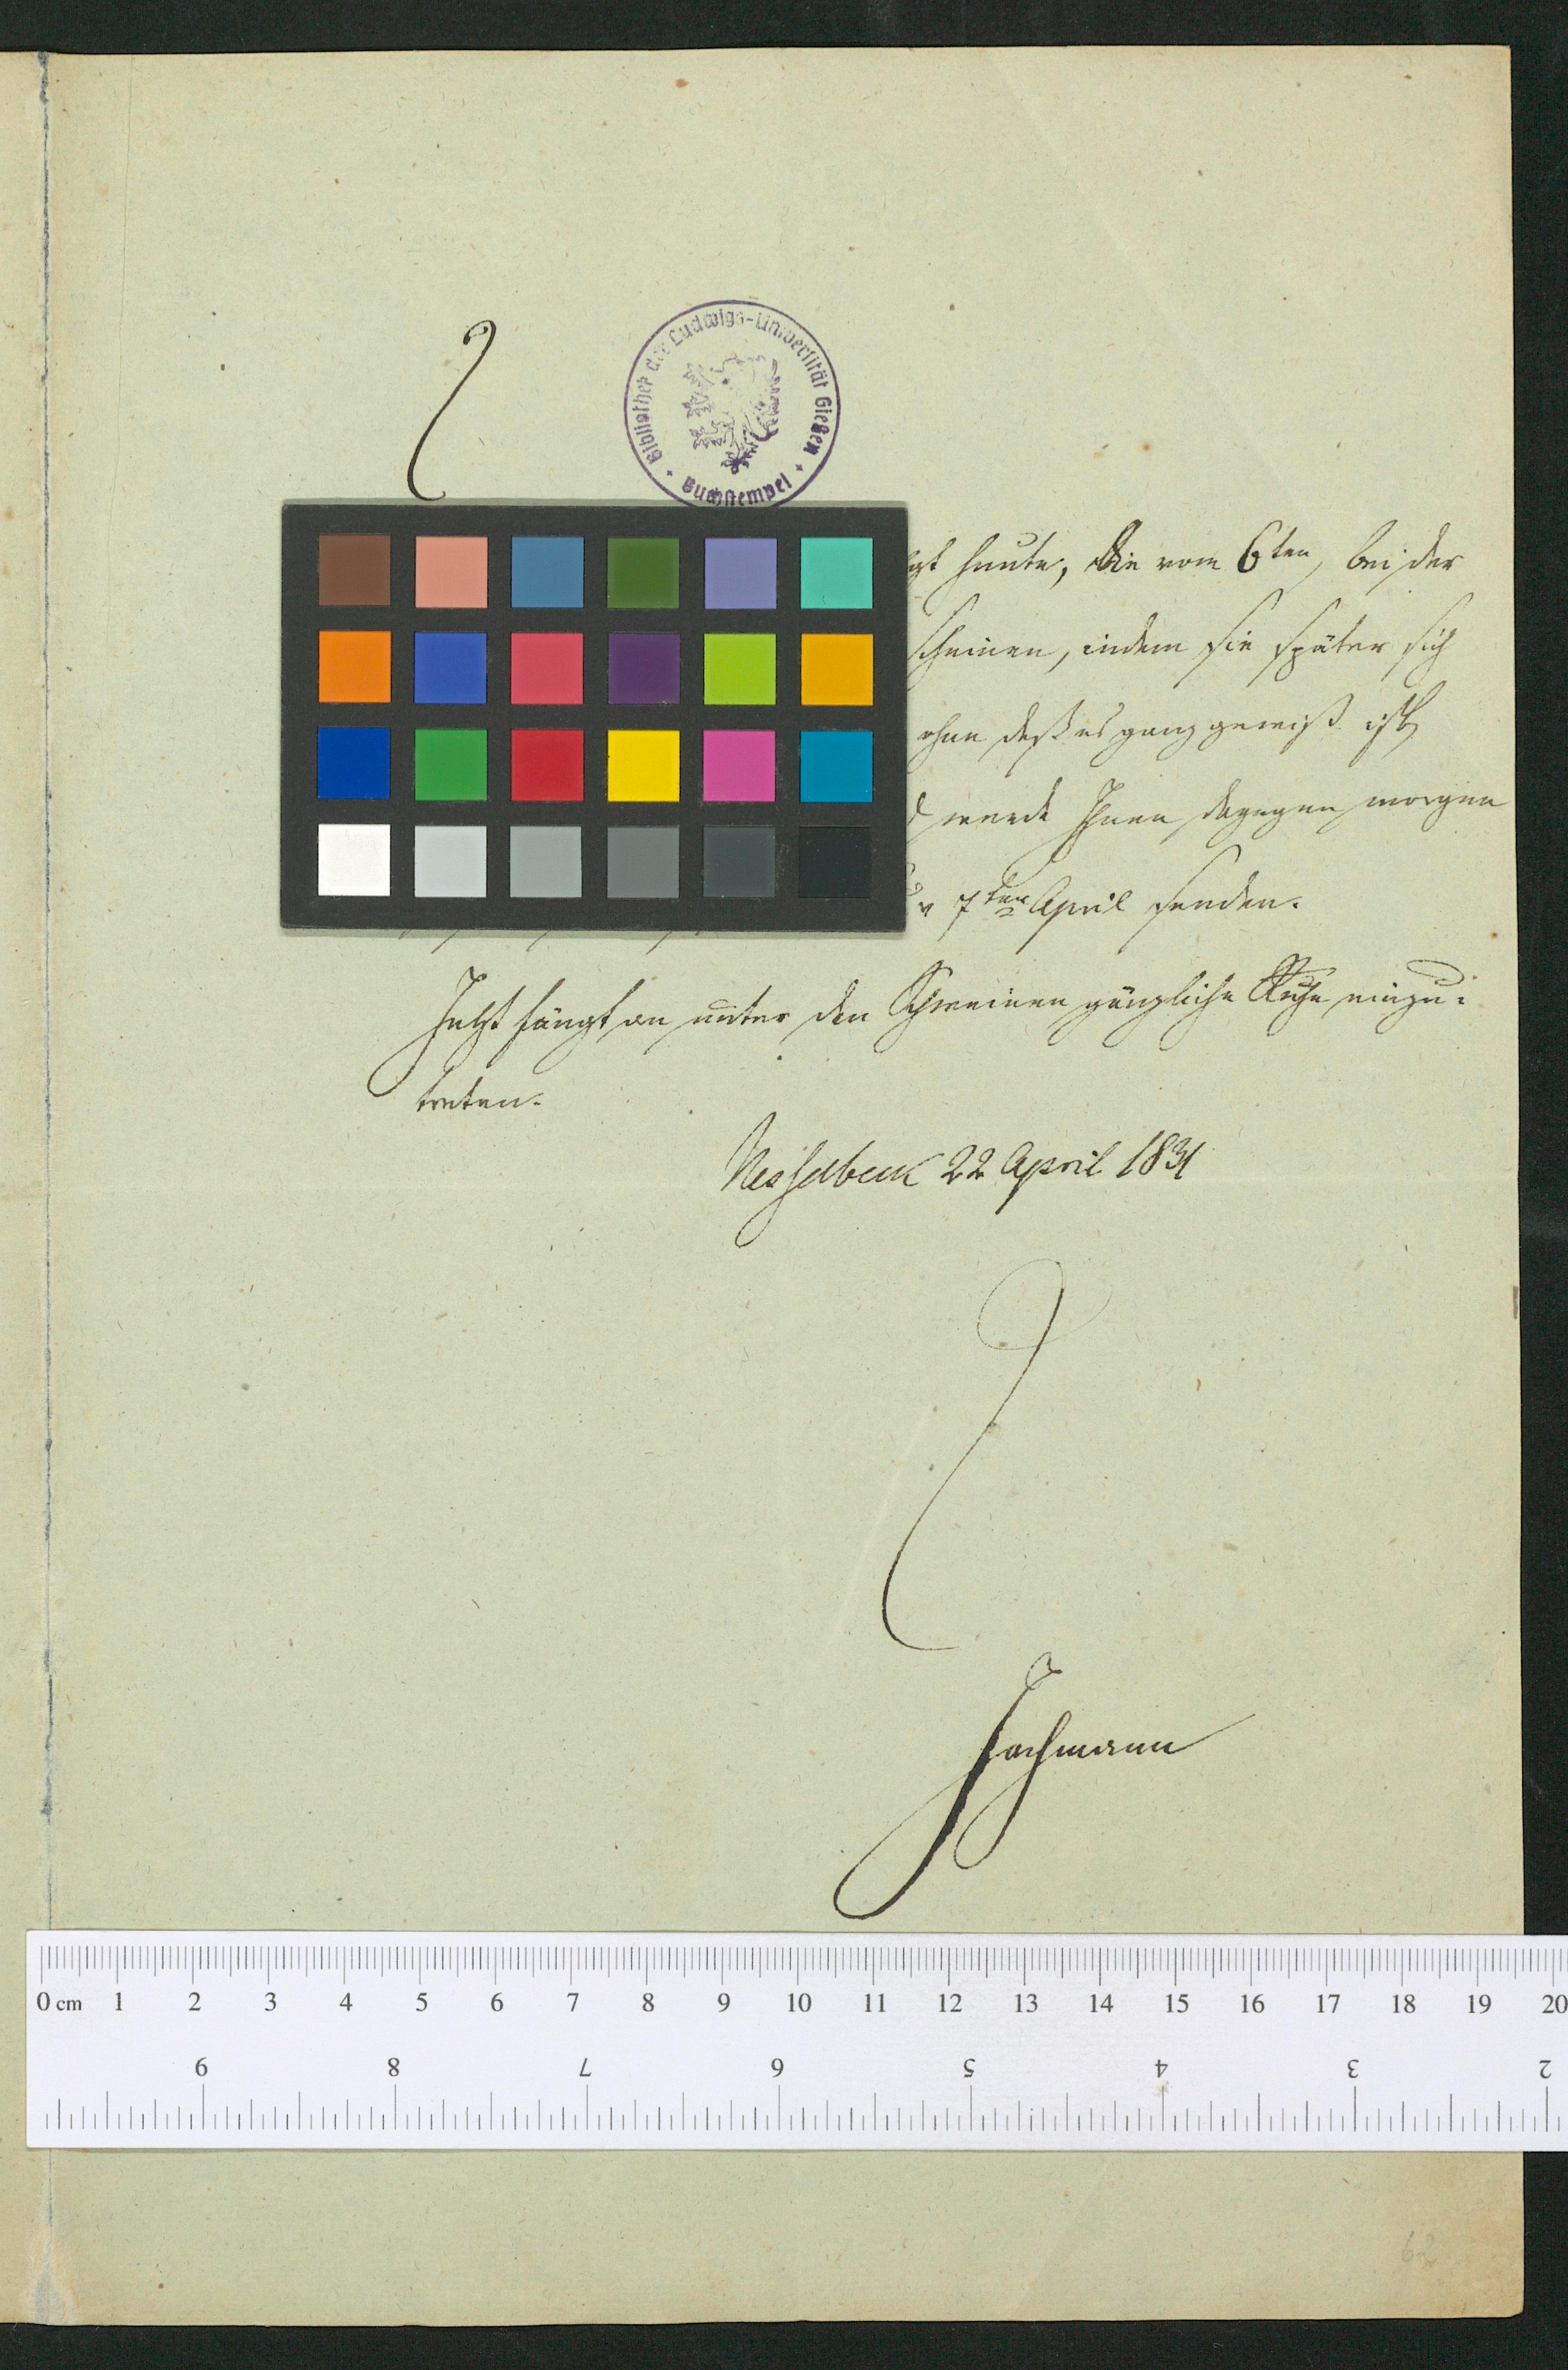 Bibliothek der Ludwigs-Universität Gießen
Buchstempel
heute, die vom 6ten, bei der
scheinen, indem sie später sich
ohne daß es ganz gewiß ist,
werde Ihnen dagegen morgen
7ten April senden.
Jetzt fängt an unter den Schweinen gänzliche Ruhe einzu:
treten.
Nesselbeck 22 April 1831
Jachmann
0 cm 1 2 3 4 5 6 7 8 9 10 11 12 13 14 15 16 17 18 19 20
9 8 7 6 5 4 3 2
62